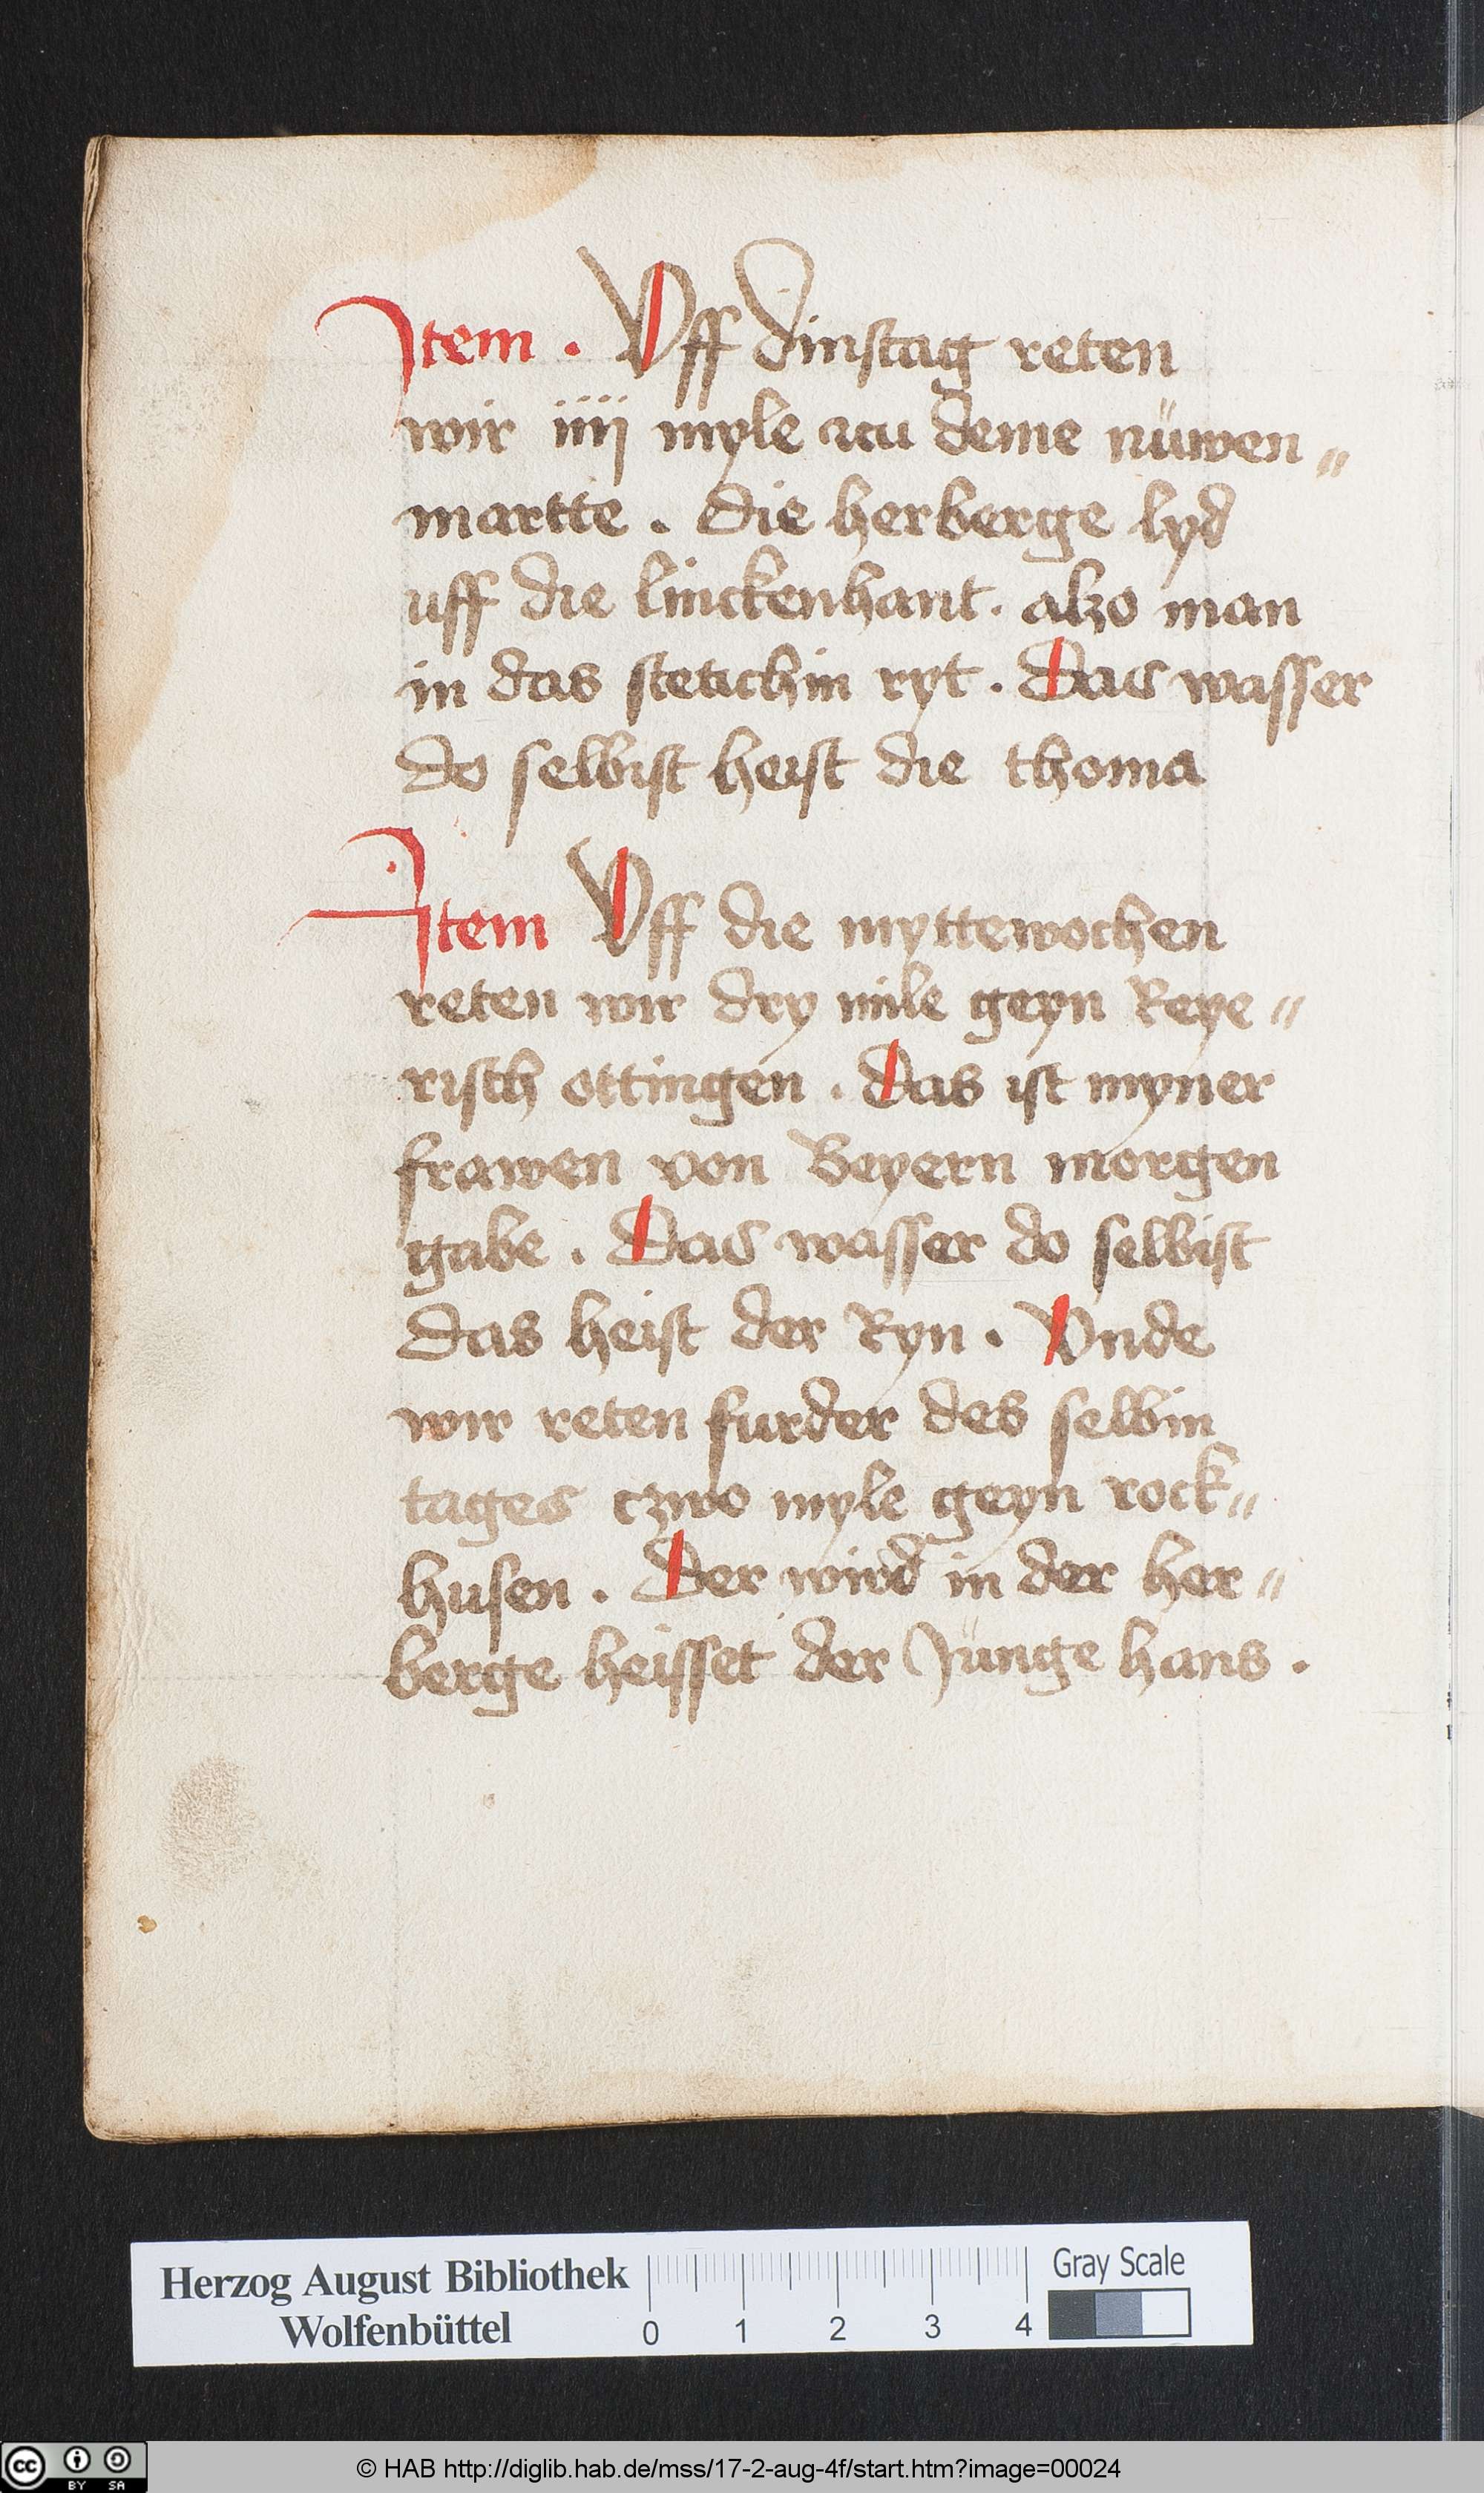 Item . Uff dinstag reten
wir iiij myle zcu deme nüwen„
martte . die herberge lyd
uff die linckenhant . alzo man
in das stetichin ryt . Das wasser
do selbist heist die thoma
Item Uff die myttewochen
reten wir dry mile geyn Reye„
risch ottingen . Das ist myner
frawen von Beyern morgen
gabe . Das wasser do selbist
das heist der Ryn . Unde
wir reten furder des selbin
tages czwo myle geyn rock„
husen . Der wird in der her„
berge heisset der Jünge hans .
Herzog August Bibliothek
Wolfenbüttel
0 1 2 3 4
Gray Scale
cc BY SA
© HAB http://diglib.hab.de/mss/17-2-aug-4f/start.htm?image=00024